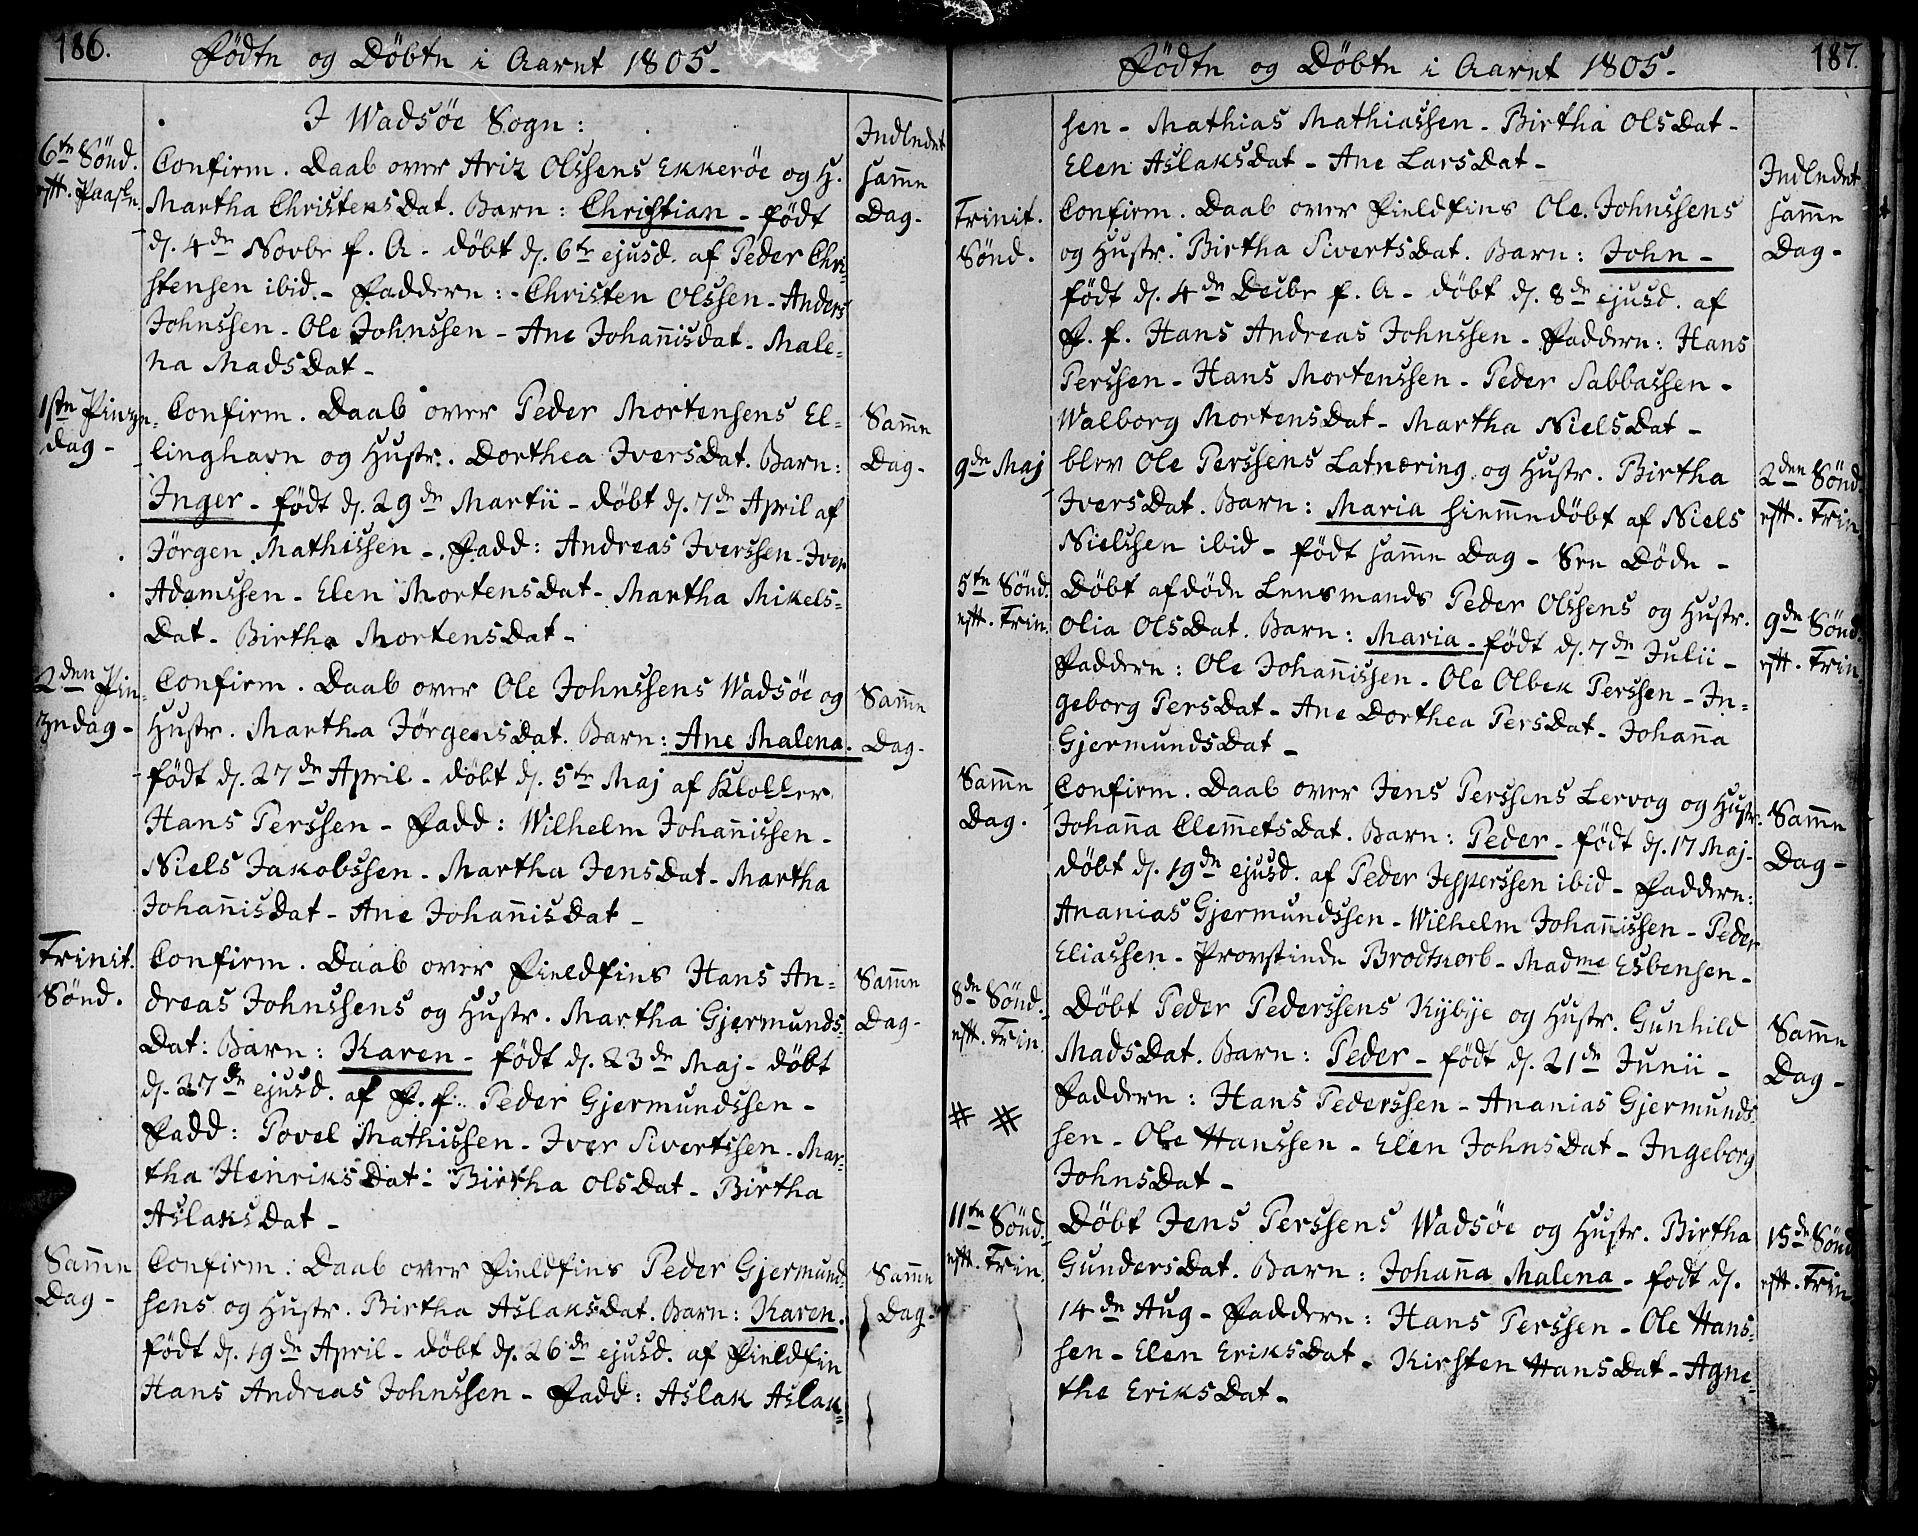 186.
Födte og Döbte i Aaret 1805.
I Wadsöe Sogn:
6te Sönd.
eft. Paaske.
Confirm. Daab over Ariz Olssens Ekkeröe og H.
Martha ChristensDat. Barn: Christian - födt
d. 4de Novbr f. A. döbt d. 6te ejusd. af Peder Chri-
stensen ibid. - Faddere: - Christen Olssen - Anders
Johnssen - Ole Johnssen - Ane Johañisdat - Male-
na MadsDat -
Indledet
sam̃e
Dag -
1ste Pinze-
dag -
Confirm. Daab over Peder Mortensens El-
linghavn og Hustr. Dorthea IversDat. Barn:
Inger - födt d. 29de Martii - döbt d. 7de April af
Jörgen Mathissen - Fadd: Andreas Iverssen - Iver
Adamssen - Elen MortensDat - Martha Mikels-
Dat - Birtha MortensDat -
Sam̃e
Dag -
2den Pin-
zedag -
Confirm. Daab over Ole Johnssens Wadsöe og
Hustr. Martha JörgensDat. Barn: Ane Malena.
födt d. 27de April - döbt d. 5te Maj af Klokker
Hans Perssen - Fadd: Wilhelm Johañissen -
Niels Jakobssen - Martha JensDat - Martha
JohañisDat - Ane JohañisDat -
Sam̃e
Dag -
Trinit.
Sönd.
Confirm. Daab over Fieldfins Hans An-
dreas Johnssens og Hustr. Martha Gjermunds-
Dat: Barn: Karen - födt d. 23de Maj - döbt
d. 27de ejusd. af F. f. Peder Gjermundssen -
Fadd: Povel Mathissen - Iver Sivertssen - Mar-
tha HenriksDat - Birtha OlsDat - Birtha
AslaksDat -
Sam̃e
Dag -
Sam̃e
Dag -
Confirm. Daab over Fieldfins Peder Gjermund-
sens og Hustr. Birtha AslaksDat. Barn: Karen.
födt d. 19de April - döbt d. 26de ejusd. af Fieldfin
Hans Andreas Johnssen - Fadd: Aslak Aslak-
Sam̃e
Dag -
187.
Födte og Döbte i Aaret 1805.
sen - Mathias Mathiassen - Birtha OlsDat -
Elen AslaksDat - Ane LarsDat -
Trinit.
Sönd.
Confirm. Daab over Fieldfins Ole Johnssens
og Hustr. Birtha SivertsDat. Barn: John -
födt d. 4de Decbr f. A - döbt d. 8de ejusd. af
F. f. Hans Andreas Johnssen - Faddere: Hans
Perssen - Hans Mortenssen - Peder Sabbassen -
Walborg MortensDat - Martha NielsDat -
Indledet
sam̃e
Dag -
9de Maj
blev Ole Perssens Latnæring og Hustr. Birtha
IversDat. Barn: Maria hiem̃edöbt af Niels
Nielssen ibid - födt sam̃e Dag - Sen Döde -
2den Sönd.
eft. Trin
5te Sönd.
eft. Trin.
Döbt afdöde Lensmands Peder Olssens og Hustr.
Olia OlsDat. Barn: Maria - födt d. 7de Julii -
Faddere: Ole Johañissen - Ole Olbek Perssen - In-
geborg PersDat - Ane Dorthea PersDat - Johaña
GjermundsDat -
9de Sönd.
eft. Trin.
Sam̃e
Dag.
Confirm. Daab over Jens Perssens Lervog og Hustr.
Johaña Clem̃etsDat. Barn: Peder - födt d. 17 Maj -
döbt d. 19de ejusd. af Peder Jesperssen ibid - Faddere:
Ananias Gjermundssen - Wilhelm Johañissen - Peder
Eliassen - Provstinde Brodtkorb - Madme Esbensen -
Sam̃e
Dag -
8de Sönd.
eft. Trin.
Döbt Peder Pederssens Kybÿe og Hustr. Gunhild
MadsDat. Barn: Peder - födt d. 21de Junii -
Faddere: Hans Pederssen - Ananias Gjermunds-
sen - Ole Hanssen - Elen JohnsDat - Ingeborg
JohnsDat -
Sam̃e
Dag -
# #
11te Sönd.
eft. Trin.
Döbt Jens Perssens Wadsöe og Hustr. Birtha
GundersDat. Barn: Johaña Malena - födt d.
14de Aug - Faddere: Hans Perssen - Ole Hans-
sen - Elen EriksDat - Kirsten HansDat - Agne-
the EriksDat -
15de Sönd
eft. Trin